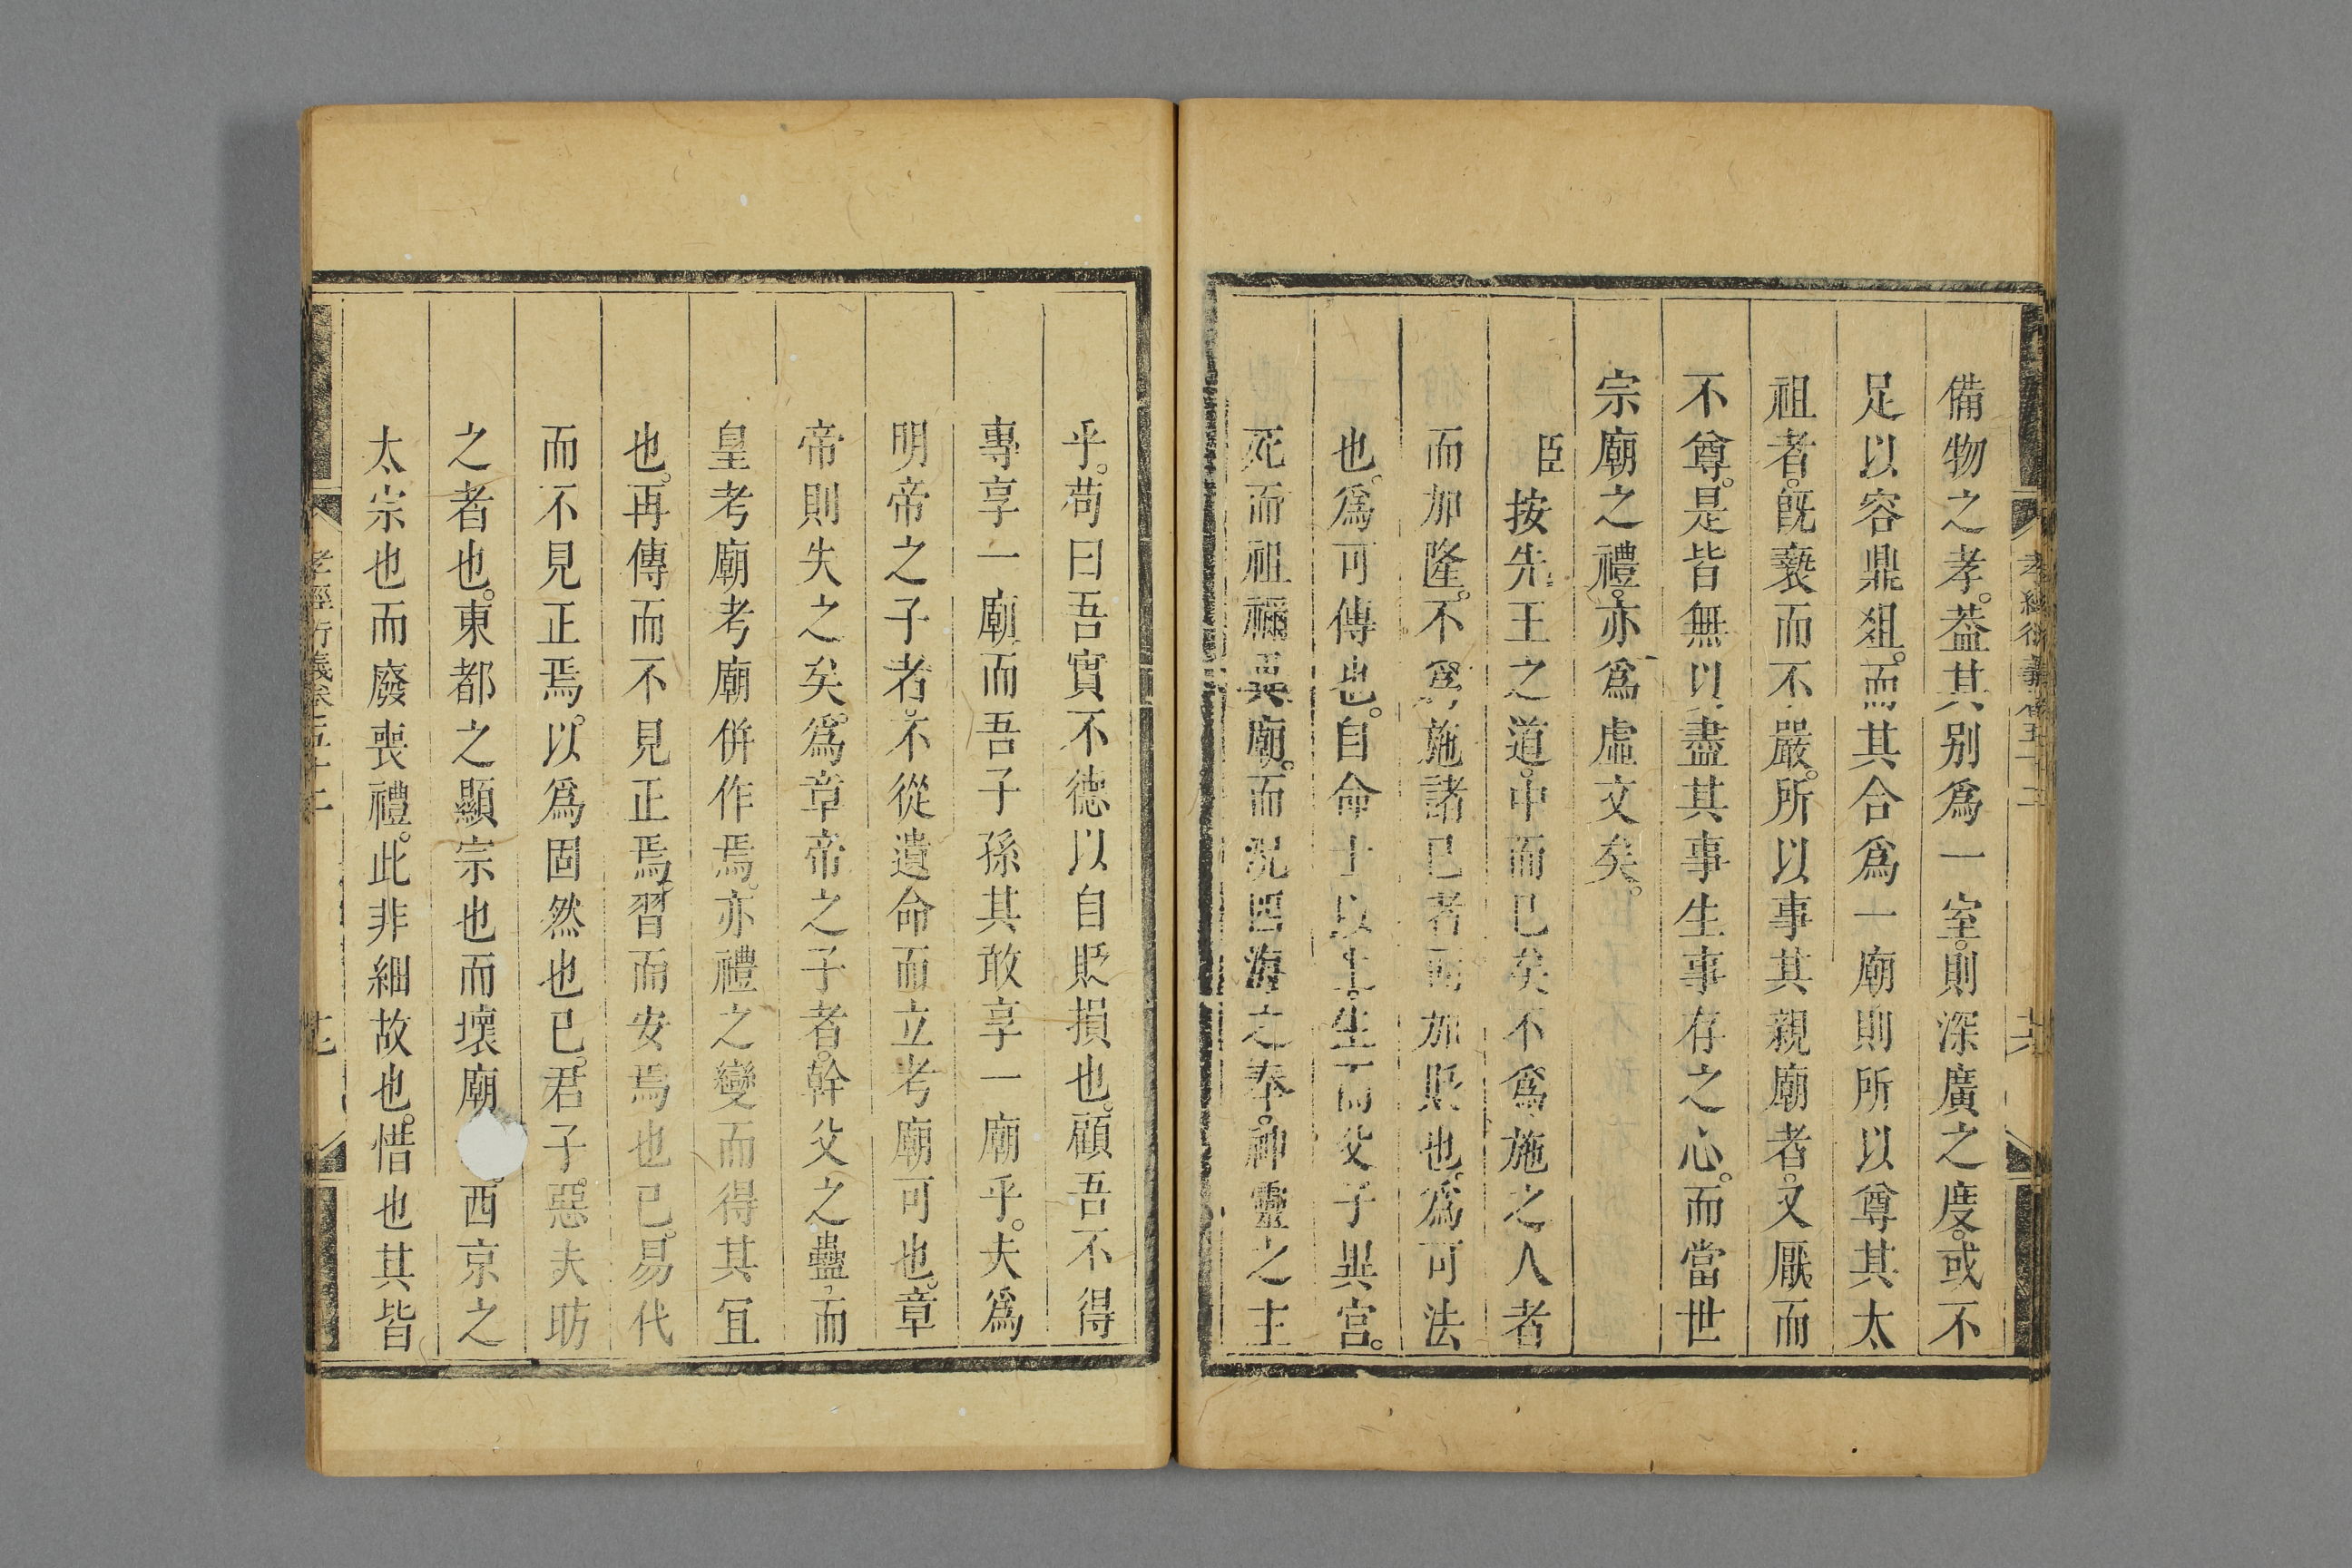 備物之孝。葢其別爲一室。則深廣之度。或不
足以容鼎俎。而其合爲一廟則所以尊其太
祖者。旣䙝而不嚴。所以事其親廟者。又厭而
不尊。是皆無以盡其事生事存之心。而當世
宗廟之禮。亦爲虛文矣。
臣按先王之道。中而已矣不爲施之人者
而加隆。不爲施諸已者而加貶也。爲可法
也。爲可傳也。自命士以上。生而父子異宫。
死而祖禰異廟。而況四海之奉。神靈之主
孝經衍義卷五十二
乎。茍曰吾實不德以自貶損也。顧吾不得
專享一廟而吾子孫其敢享一廟乎。夫爲
明帝之子者。不從遺命而立考廟可也。章
帝則失之矣。爲章帝之子者。幹父之蠱。而
皇考廟考廟併作焉。亦禮之變而得其宜
也。再傳而不見正焉。習而安焉也已。易代
而不見正焉。以爲固然也已。君子。惡夫昉
之者也。東都之顯宗也而壞廟西京之
太宗也而廢喪禮。此非細故也。惜也其皆
孝經衍義卷五十二